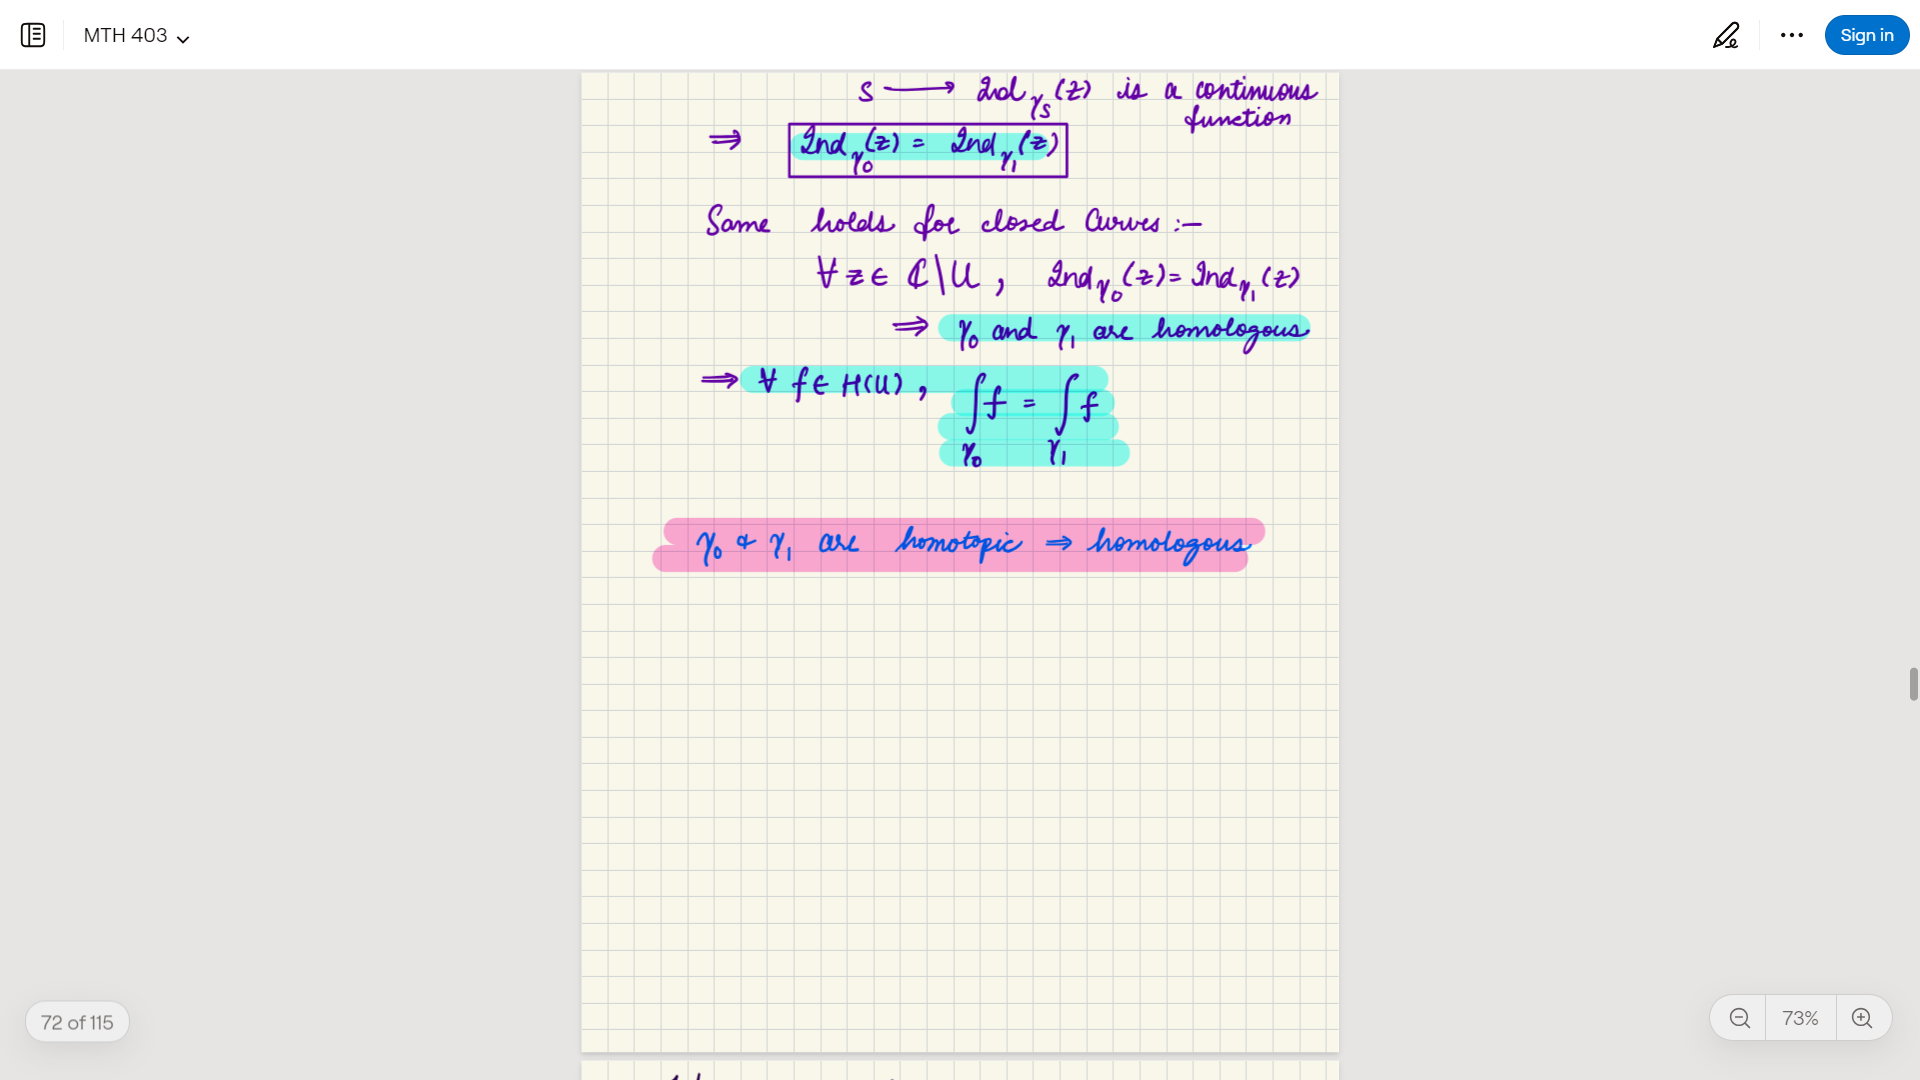 MTH 403
Sign in
s ⟶ Ind_γₛ(z) is a continuous
function
⇒ Ind_γ₀(z) = Ind_γ₁(z)
Same holds for closed curves :-
∀ z ∈ ℂ\U , Ind_γ₀(z) = Ind_γ₁(z)
⇒ γ₀ and γ₁ are homologous
⇒ ∀ f ∈ H(U) , ∫_γ₀ f = ∫_γ₁ f
γ₀ & γ₁ are homotopic ⇒ homologous
72 of 115
73%